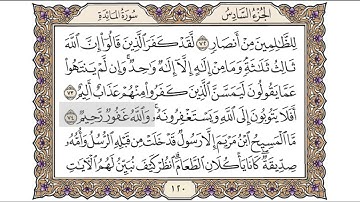 الجزء السادس سورة المائدة
لِلظَّٰلِمِينَ مِنْ أَنصَارٍ ٧٢ لَّقَدْ كَفَرَ ٱلَّذِينَ قَالُوٓا۟ إِنَّ ٱللَّهَ
ثَالِثُ ثَلَٰثَةٍ وَمَا مِنْ إِلَٰهٍ إِلَّآ إِلَٰهٌ وَٰحِدٌ وَإِن لَّمْ يَنتَهُوا۟
عَمَّا يَقُولُونَ لَيَمَسَّنَّ ٱلَّذِينَ كَفَرُوا۟ مِنْهُمْ عَذَابٌ أَلِيمٌ ٧٣
أَفَلَا يَتُوبُونَ إِلَى ٱللَّهِ وَيَسْتَغْفِرُونَهُۥ وَٱللَّهُ غَفُورٌ رَّحِيمٌ ٧٤
مَّا ٱلْمَسِيحُ ٱبْنُ مَرْيَمَ إِلَّا رَسُولٌ قَدْ خَلَتْ مِن قَبْلِهِ ٱلرُّسُلُ وَأُمُّهُۥ
صِدِّيقَةٌ كَانَا يَأْكُلَانِ ٱلطَّعَامَ ٱنظُرْ كَيْفَ نُبَيِّنُ لَهُمُ ٱلْـَٔايَٰتِ
١٢٠